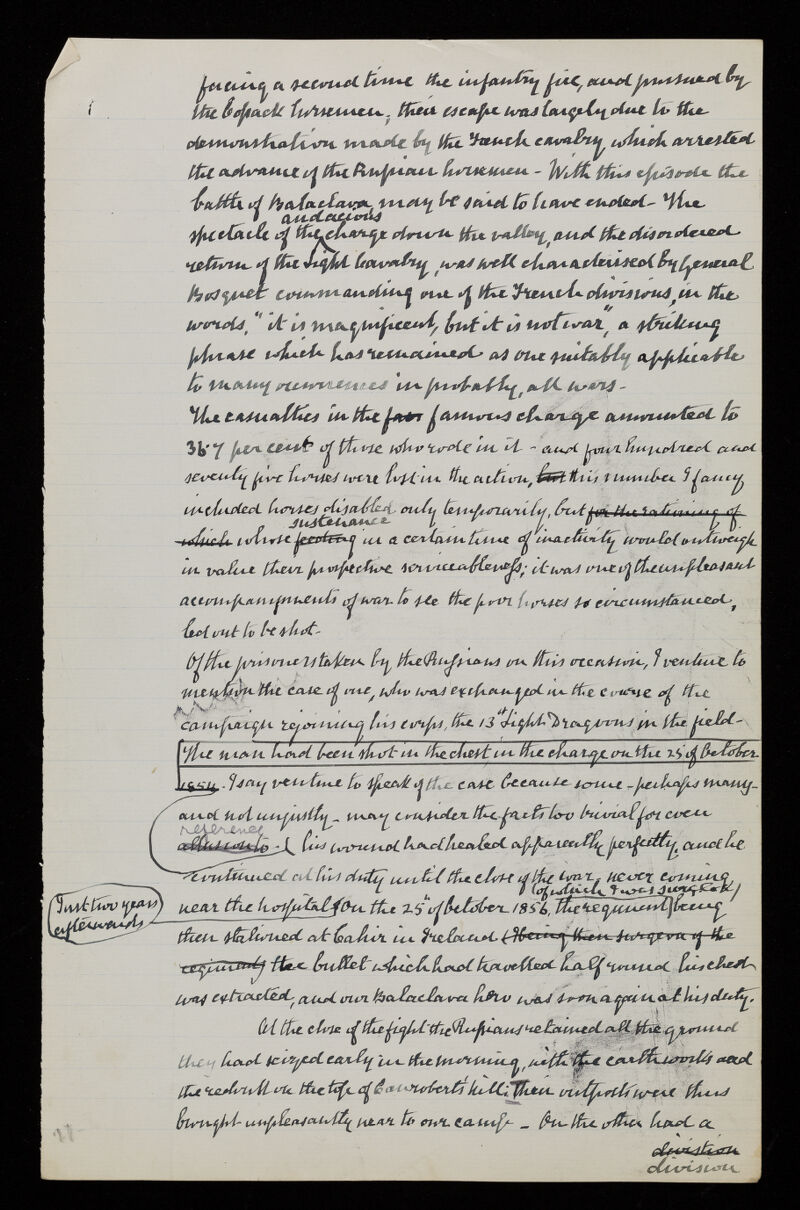 facing a second time the infantry fire, and pursued by
the Cossack horsemen; their escape was largely due to the
demonstration made by the French cavalry, which arrested
the advance of the Russian horsemen - With this episode the
battle of Balaclava may be said to have ended - The
audacious
spectacle of the charge down the valley, and the disordered
return of the Light Cavalry, was well characterised by General
Bosquet commanding one of the French divisions, in the
words, "it is magnificent, but it is not war", a striking
phrase which has remained as one suitably applicable
to many occurrences in probably, all wars -
The casualties in the famous charge amounted to
36.7 per cent of those who rode in it - and four hundred and
seventy five horses were lost in the action, but this number I fancy
included horses disabled only temporarily, but for the rationing of
sustenance
which whose feeding in a certain time of inactivity would outweigh
in value their prospective serviceableness; it was one of the unpleasant
accompaniments of war to see the poor horses so circumstanced,
led out to be shot -
Of the prisoners taken by the Russians on this occasion, I venture to
mention the case of one, who was exchanged in the course of the
campaign rejoining his corps, the 13th Light Dragoons in the field -
The man had been shot in the chest in the charge on the 25 of October
1854. I say venture to speak of the case because some - perhaps many -
and not unjustly - may consider the facts too trivial for even
reference
allusion to - his wound had healed apparently perfectly, and he
continued at his duty until the close of the war, never coming
(of which I was surgeon)
Just two years
afterwards
near the hospital. On the 25th of October 1856, the regiment being
then stationed at Cahir in Ireland (I being then surgeon of the
regiment) the bullet which had travelled half round his chest
was extracted, and our Balaclava hero was soon again at his duty.
At the close of the fight the Russians retained all the ground
they had seized early in the morning, with the earthworks and
the redoubt on the top of Canrobert's hill; their outposts were thus
brought unpleasantly near to our camp - On the other had a
division
division